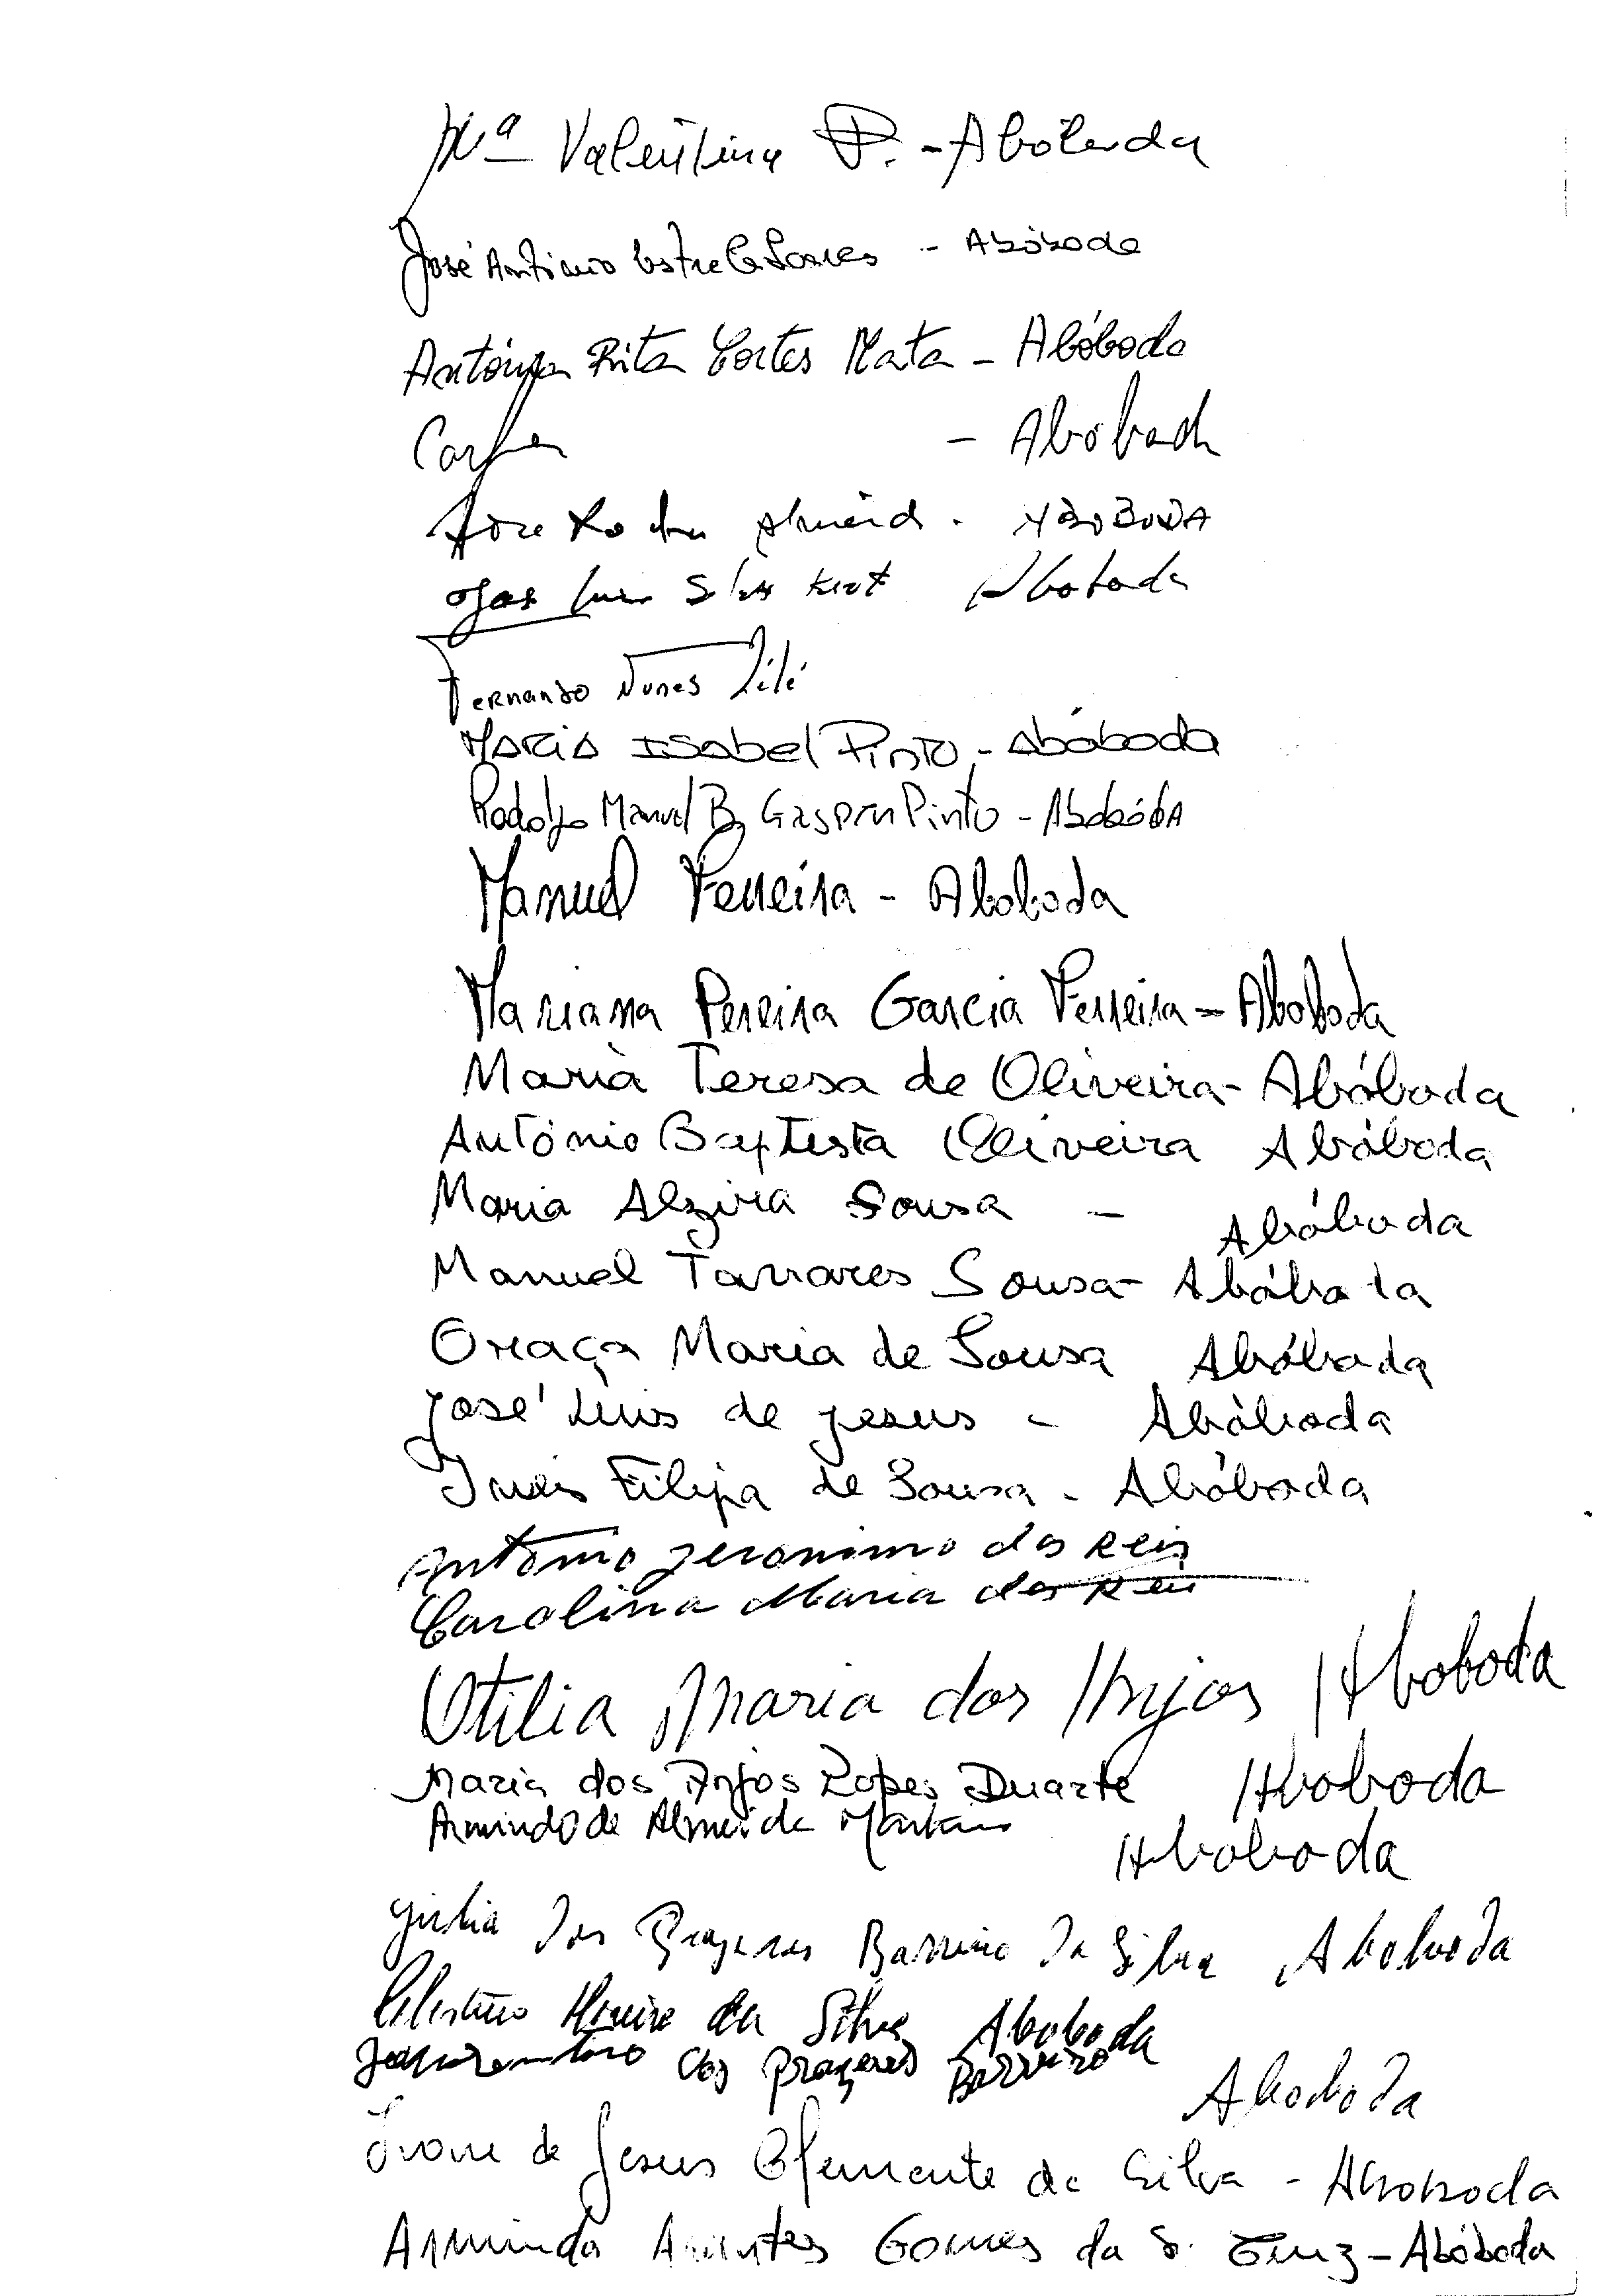 Mª Valentina P. - Abóboda
José António Estrela Soares - Abóboda
Antónia Rita Cortes Mata - Abóboda
- Abóboda
José Almeida. ABOBODA
Silva Aboboda
Fernando Nunes Zilé
Maria Isabel Pinto - Abóboda
Rodolfo Manuel B. Gaspar Pinto - Abobóda
Manuel Ferreira - Aboboda
Mariana Pereira Garcia Ferreira - Aboboda
Maria Teresa de Oliveira - Abóboda
António Baptista Oliveira Abóboda
Maria Alzira Sousa - Abóboda
Manuel Tavares Sousa - Abóboda
Oraça Maria de Sousa Abóboda
José Luis de Jesus - Abóboda
Inês Filipa de Sousa - Abóboda
Antonio Jeronimo dos Reis
Carolina Maria dos Reis
Otilia Maria dos Anjos Aboboda
Maria dos Anjos Lopes Duarte Aboboda
Armindo de Almeida Martins Aboboda
Julia dos Prazeres Barreiro da Silva, Aboboda
Celestino da Silva Aboboda
dos Prazeres Barreiro Aboboda
Ivone de Jesus Clemente da Silva - Aboboda
Arminda Gomes da S. - Abóboda